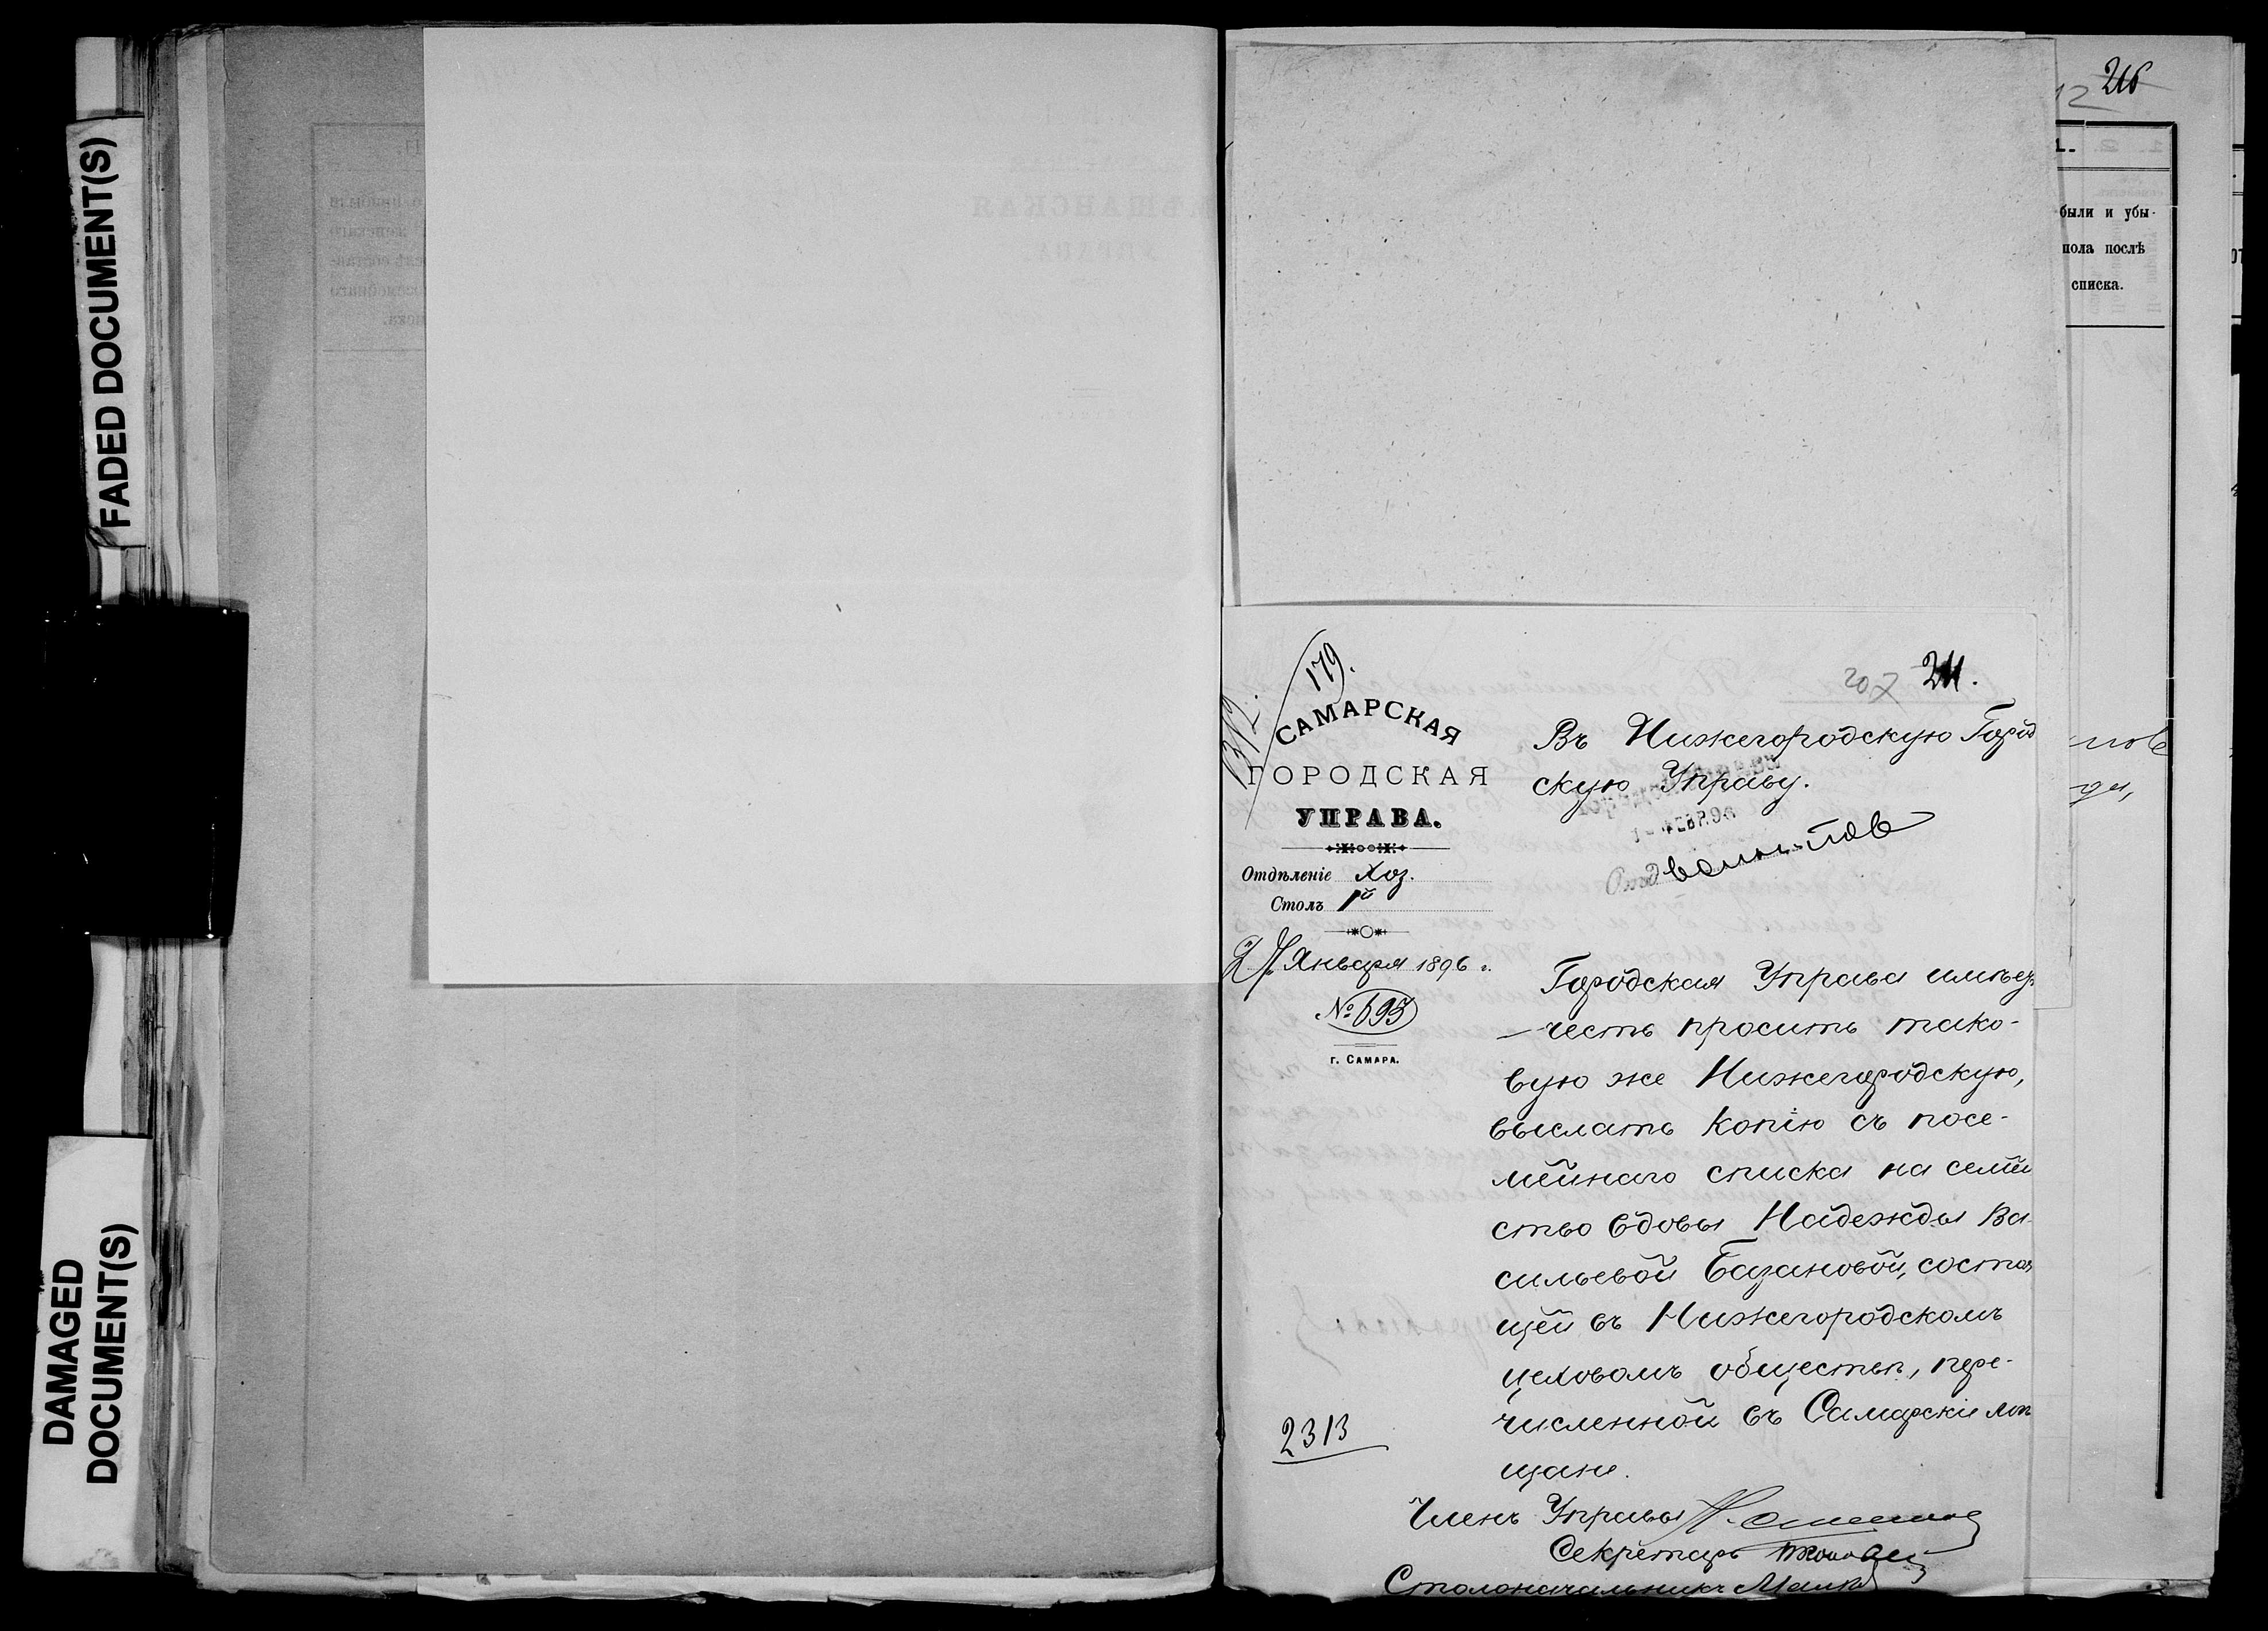 FADED DOCUMENT(S)
DAMAGED
DOCUMENT(S)
216
12
были и убы-
пола послѣ
списка.
179.
1312.
САМАРСКАЯ
ГОРОДСКАЯ
УПРАВА.
Отдѣленіе Хоз.
Столъ 1й
Января 1896 г.
№ 693
г. САМАРА.
2313
207 211.
Въ Нижегородскую Город
скую Управу.
ФЕВР. 96
Городская Управа имѣет
честь просить тако-
вую же Нижегородскую,
выслать копію съ посе-
мейнаго списка на семей
ство вдовы Надежды Ва-
сильевой Базановой, состоя
щей въ Нижегородскомъ
цеховомъ обществѣ, пере-
численной въ Самарскіе мѣ
щане.
Членъ Управы
Секретарь
Столоначальникъ